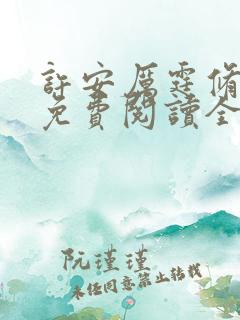 許安厲霆脩
免費閱讀全
阮瑾瑾
未經同意禁止轉載